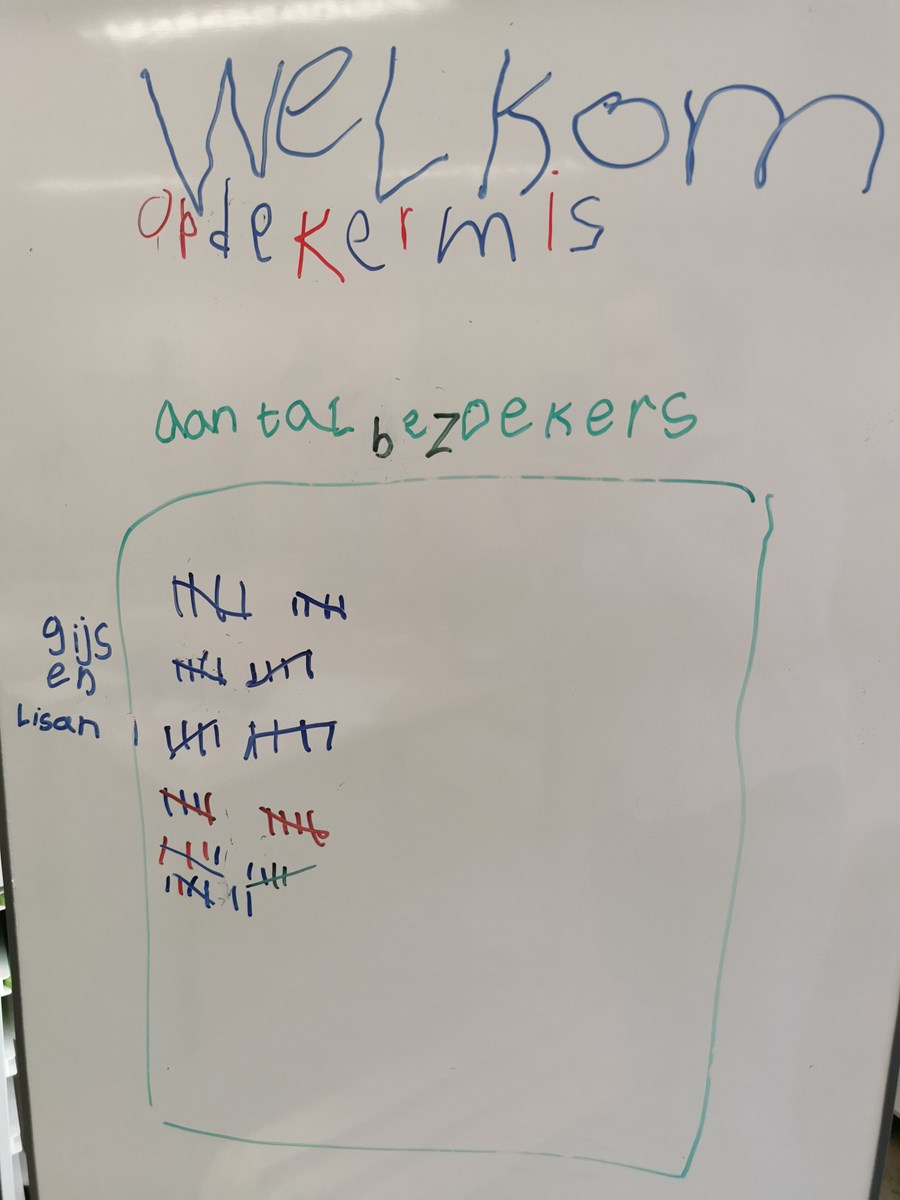 WeLkom
opdekermis
aantaL bezoekers
gijs
en
Lisan